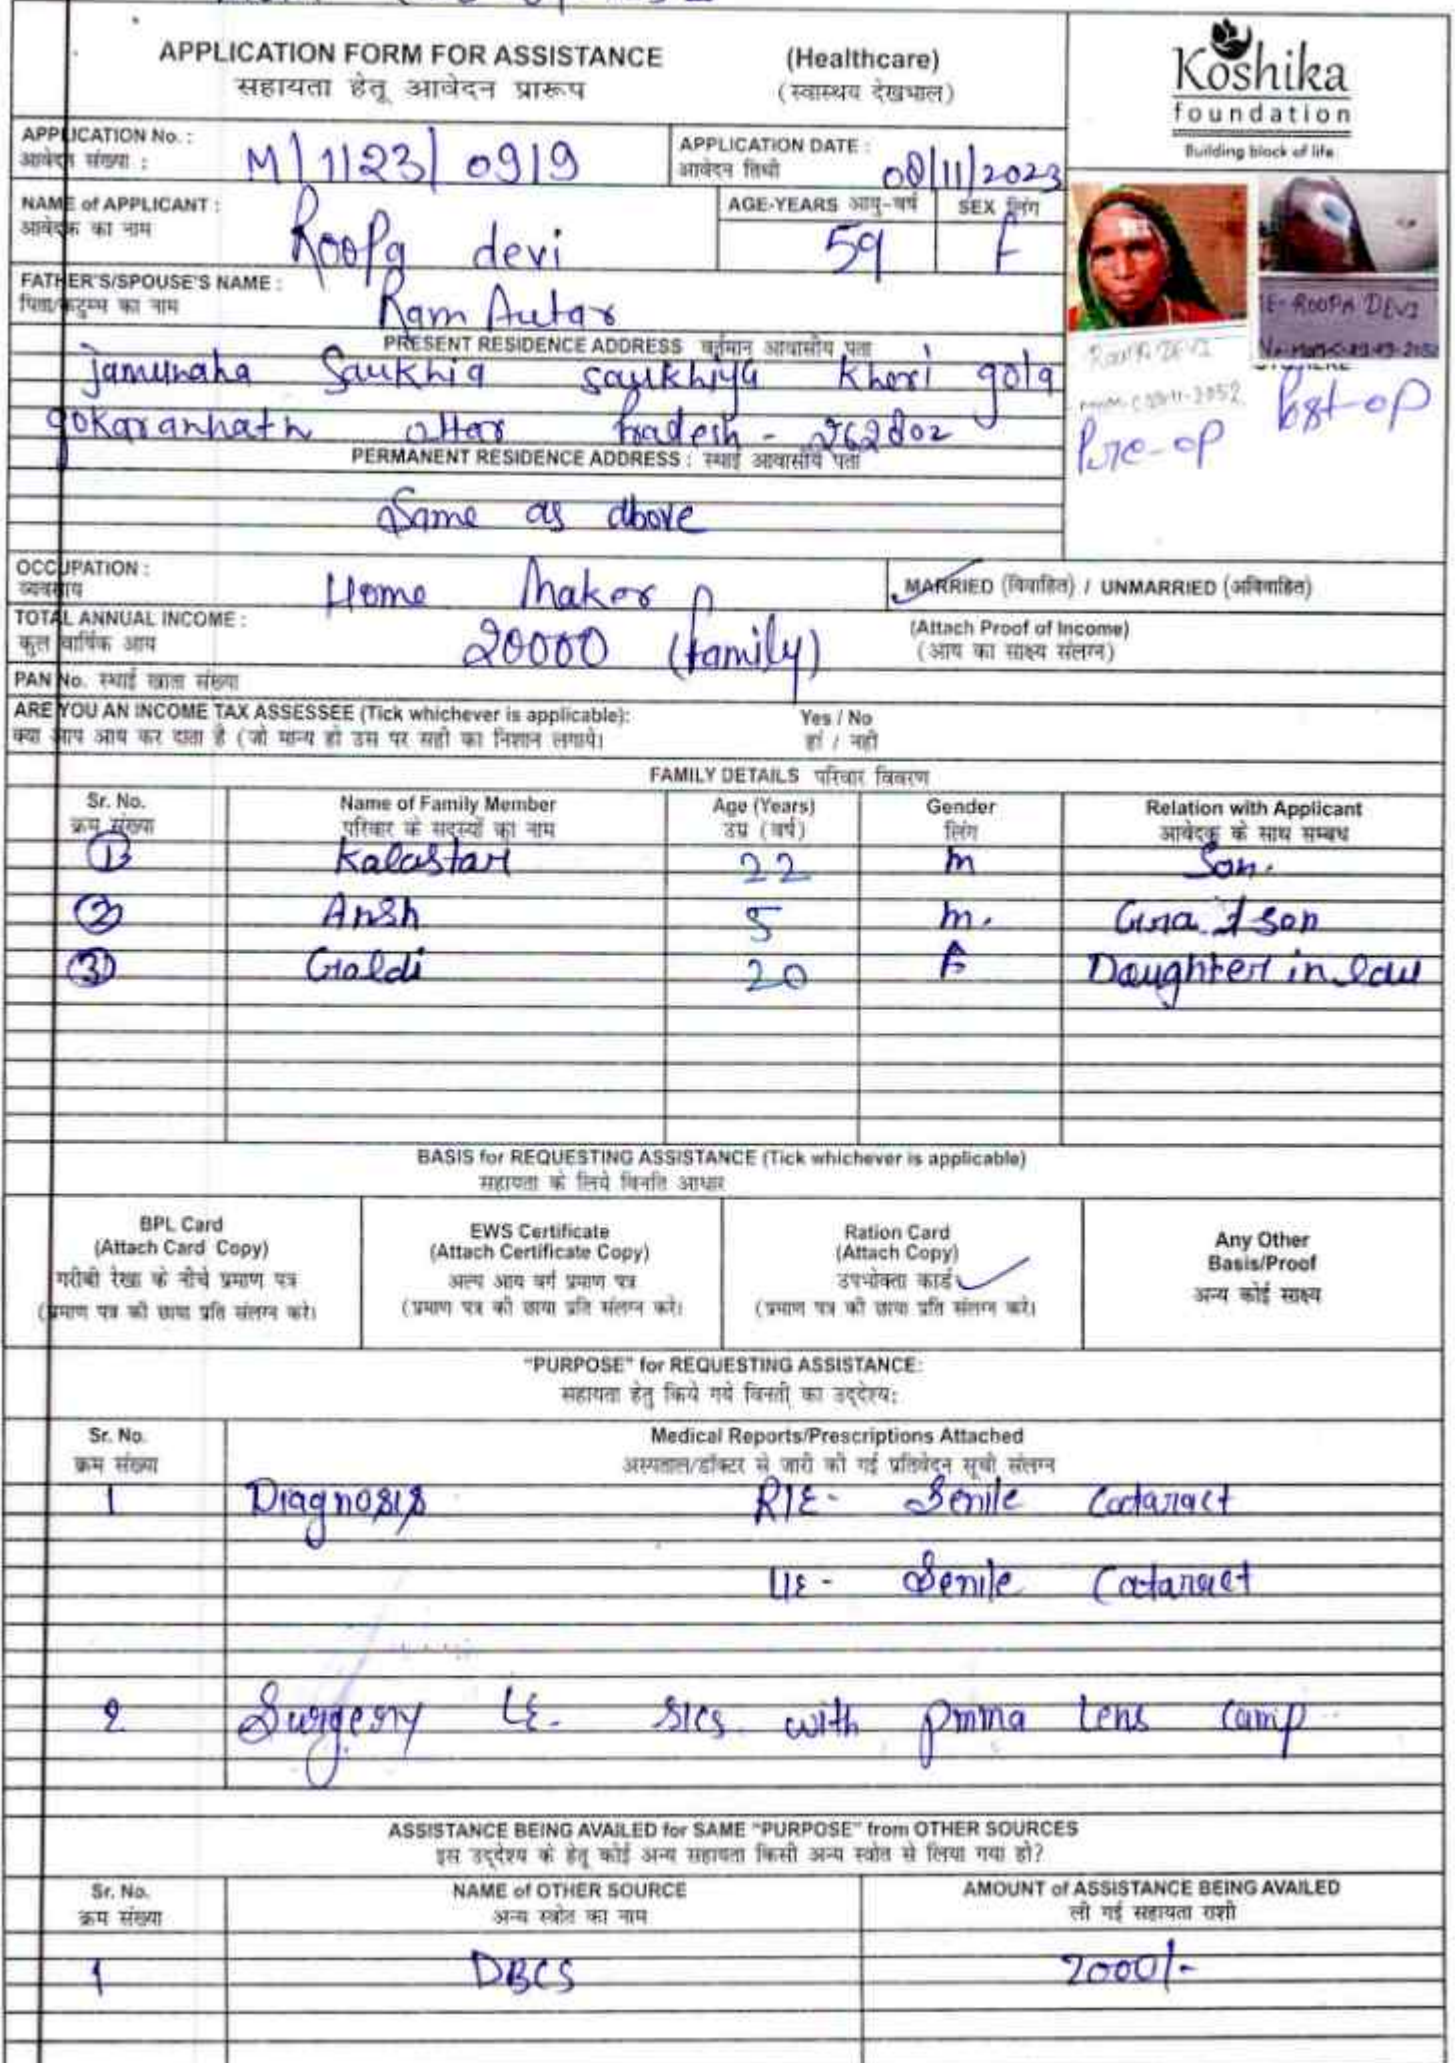 APPLICATION FORM FOR ASSISTANCE (Healthcare)
सहायता हेतू आवेदन प्रारूप (स्वास्थय देखभाल)
Koshika
foundation
Building block of life
APPLICATION No. : M/1123/0919
आवेदन संख्या :
APPLICATION DATE : 08/11/2023
आवेदन तिथी
NAME of APPLICANT : Roopa devi
आवेदक का नाम
AGE-YEARS आयु-वर्ष 59
SEX लिंग F
FATHER'S/SPOUSE'S NAME : Ram Autar
पिता/कटुम्ब का नाम
PRESENT RESIDENCE ADDRESS वर्तमान आवासीय पता
Jamunaha Saukhia saukhiya Kheri gola
gokarannath uttar Pradesh - 262802
PERMANENT RESIDENCE ADDRESS : स्थाई आवासीय पता
Same as above
ROOPA DEVI
Pre-op
IE- ROOPA DEVI
Post-op
OCCUPATION : Home Maker
व्यवसाय
MARRIED (विवाहित) / UNMARRIED (अविवाहित)
TOTAL ANNUAL INCOME : 20000 (family)
कुल वार्षिक आय
(Attach Proof of Income)
(आय का साक्ष्य संलग्न)
PAN No. स्थाई खाता संख्या
ARE YOU AN INCOME TAX ASSESSEE (Tick whichever is applicable): Yes / No
क्या आप आय कर दाता है (जो मान्य हो उस पर सही का निशान लगाये। हां / नही
FAMILY DETAILS परिवार विवरण
Sr. No. Name of Family Member Age (Years) Gender Relation with Applicant
क्रम संख्या परिवार के सदस्यों का नाम उम्र (वर्ष) लिंग आवेदक के साथ सम्बंध
1 Kalastar 22 m Son.
2 Ansh 5 m. Grand son
3 Galdi 20 F Daughter in law
BASIS for REQUESTING ASSISTANCE (Tick whichever is applicable)
सहायता के लिये विनति आधार
BPL Card
(Attach Card Copy)
गरीबी रेखा के नीचे प्रमाण पत्र
(प्रमाण पत्र की छाया प्रति संलग्न करे।
EWS Certificate
(Attach Certificate Copy)
अल्प आय वर्ग प्रमाण पत्र
(प्रमाण पत्र की छाया प्रति संलग्न करे।
Ration Card
(Attach Copy)
उपभोक्ता कार्ड
(प्रमाण पत्र की छाया प्रति संलग्न करे।
Any Other
Basis/Proof
अन्य कोई साक्ष्य
"PURPOSE" for REQUESTING ASSISTANCE:
सहायता हेतु किये गये विनती का उद्देश्य:
Sr. No. Medical Reports/Prescriptions Attached
क्रम संख्या अस्पताल/डॉक्टर से जारी की गई प्रतिवेदन सूची संलग्न
1 Diagnosis R/E- Senile Cataract
L/E- Senile Cataract
2 Surgery LE- SICS with pmma Lens Camp
ASSISTANCE BEING AVAILED for SAME "PURPOSE" from OTHER SOURCES
इस उद्देश्य के हेतू कोई अन्य सहायता किसी अन्य स्त्रोत से लिया गया हो?
Sr. No. NAME of OTHER SOURCE AMOUNT of ASSISTANCE BEING AVAILED
क्रम संख्या अन्य स्त्रोत का नाम ली गई सहायता राशी
1 DBCS 2000/-